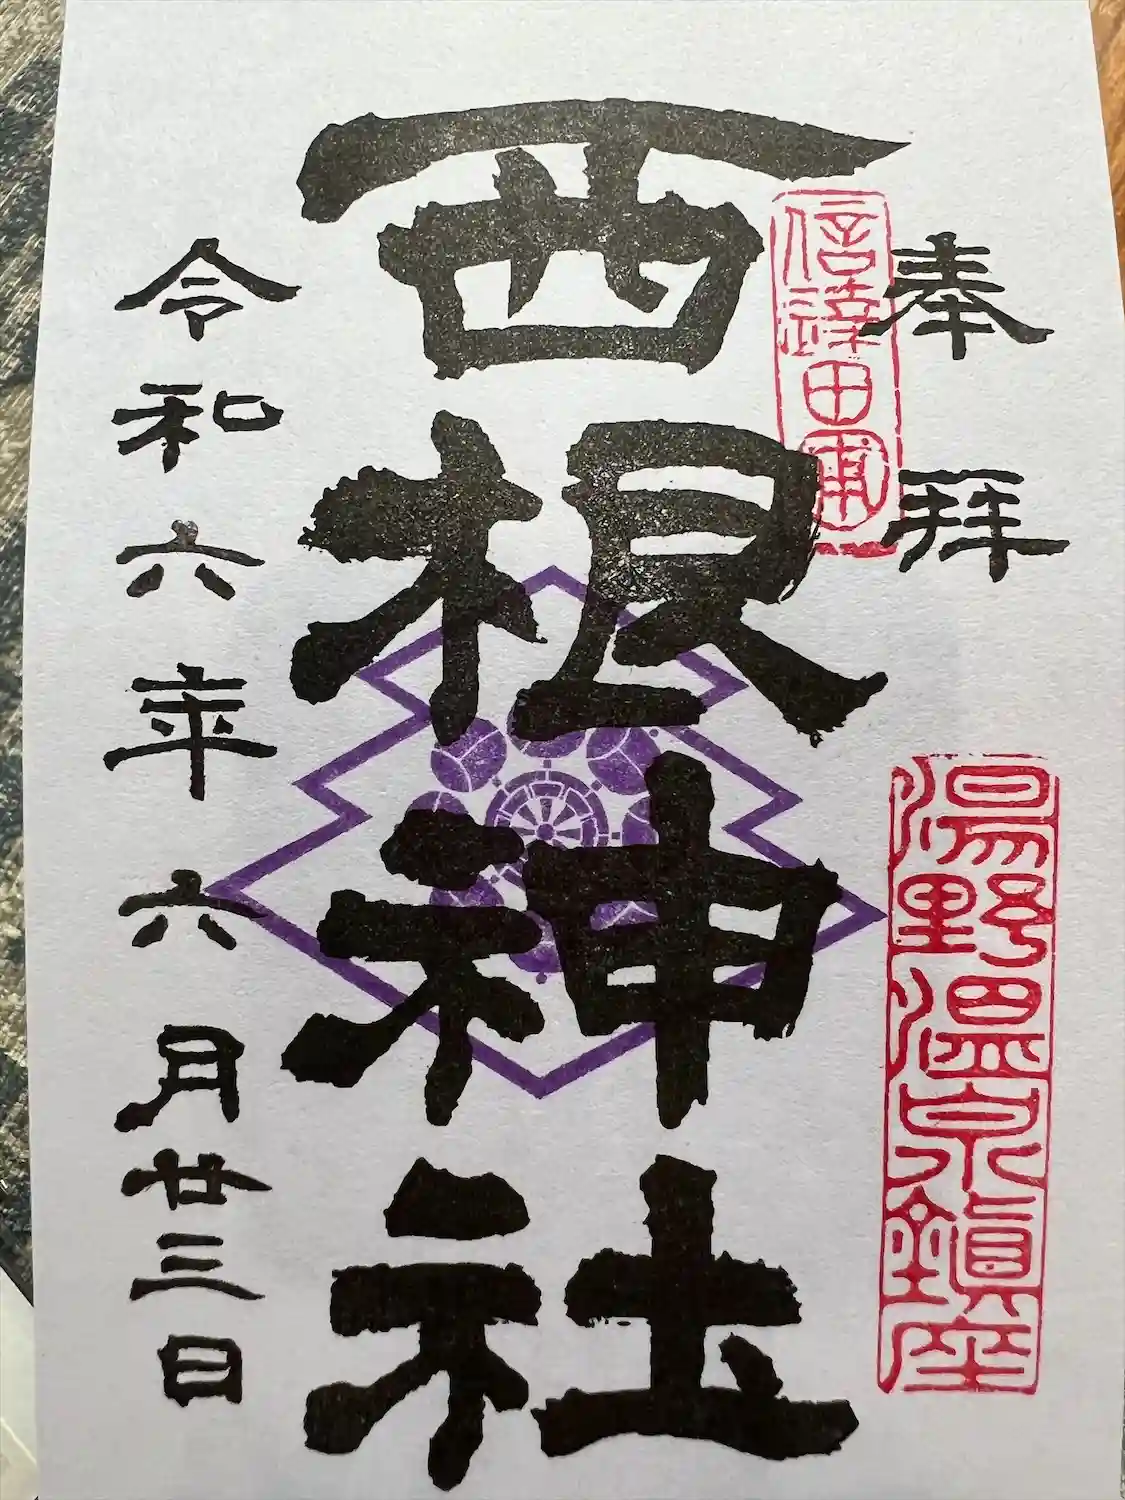 奉拝
湯野温泉鎭座
信達田圃
西根神社
令和六年六月廿三日